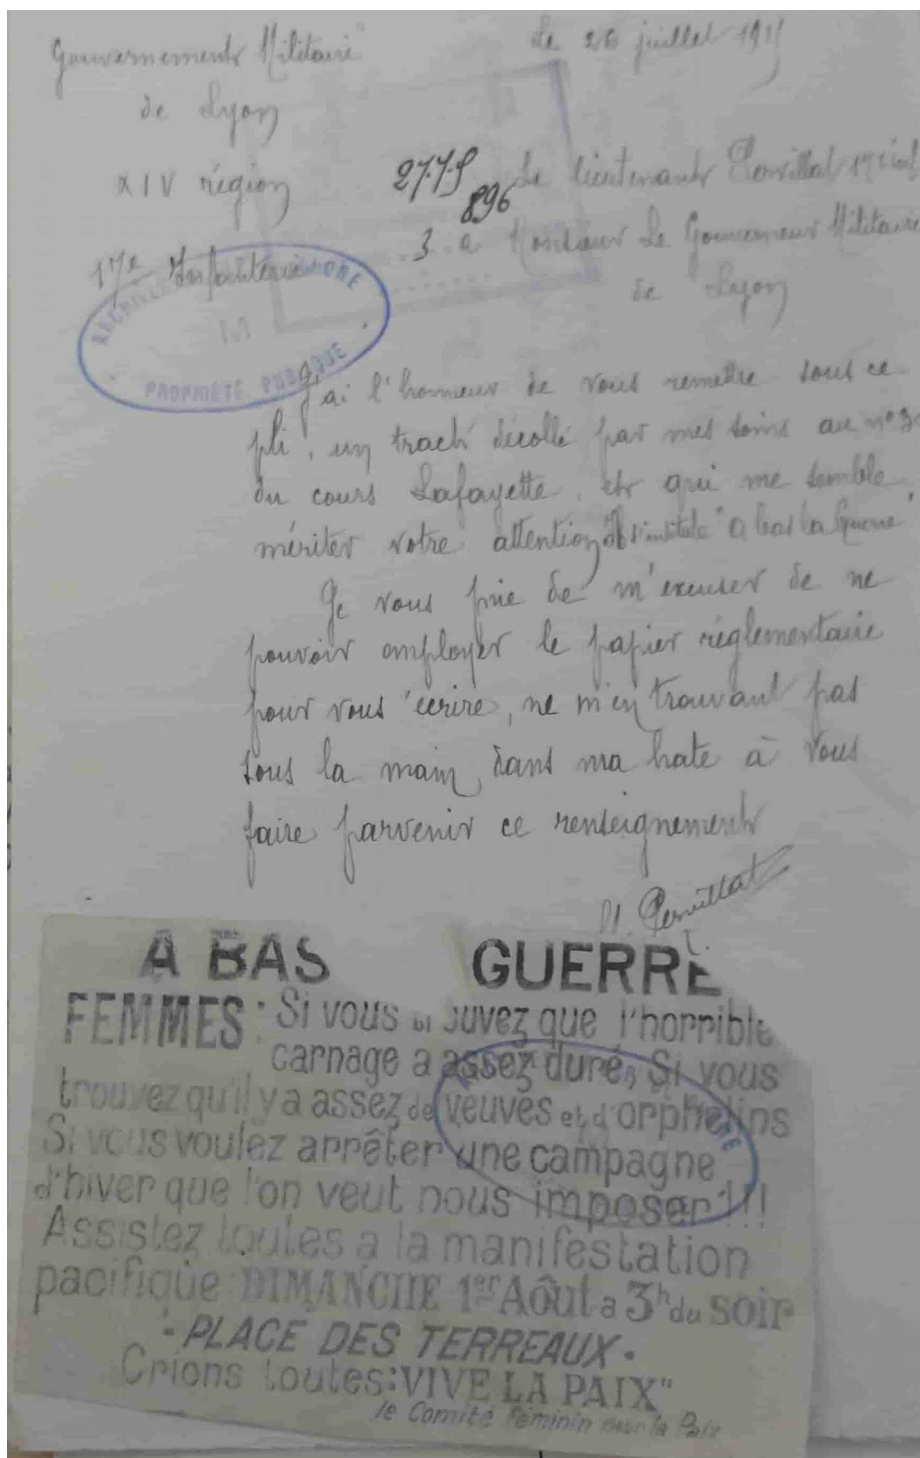 Gouvernement Militaire
de Lyon
XIV région
17e Infanterie
Le 26 juillet 191
2775
896
3
Le lieutenant
a Monsieur Le Gouverneur Militaire
de Lyon
PROPRIÉTÉ PUBLIQUE
J'ai l'honneur de vous remettre sous ce
pli, un tract décollé par mes soins au no 3
du cours Lafayette, et qui me semble
mériter votre attention, "A bas la Guerre"
Je vous prie de m'excuser de ne
pouvoir employer le papier réglementaire
pour vous écrire, ne m'en trouvant pas
sous la main, dans ma hate à vous
faire parvenir ce renseignement
A BAS GUERRE
FEMMES: Si vous ouvez que l'horrible
carnage a assez duré, Si vous
trouvez qu'il y a assez de veuves et d'orphelins
Si vous voulez arrêter une campagne
d'hiver que l'on veut nous imposer!!!
Assistez toutes a la manifestation
pacifique DIMANCHE 1er Aôut a 3h du soir
- PLACE DES TERREAUX -
Crions toutes: VIVE LA PAIX"
le Comité Féminin pour la Paix